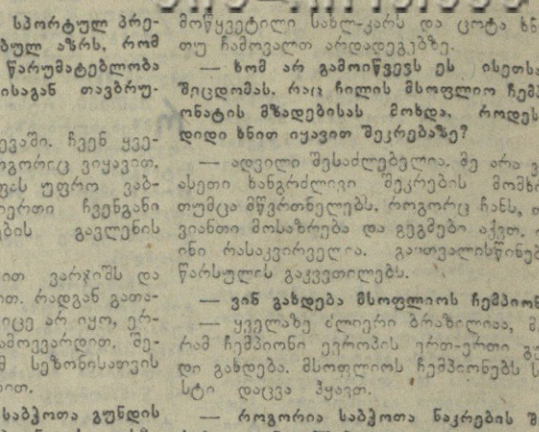 სპორტულ პრე-
ბულ აზრს, რომ
წარუმატებლობა
ისაგან თავბრუ-
ევაში. ჩვენ ყვე-
ოგორც ვიყავით,
უფრო ვაბ-
იერთი ჩვენგანი
ბის გავლენის
ით ვარჯიშს და
ით. რადგან გათა-
იცე არ იყო, ერ-
ამოევარდით. შე-
მ სეზონისათვის
ით.
საბჭოთა გუნდის
მოწყვეტილი სახლ-კარს და ცოტა ხნ
თუ ჩამოვალთ არდადეგებზე.
— ხომ არ გამოიწვევს ეს ისეთსა
შეცდომას, რაც ჩილის მსოფლიო ჩემპ
ონატის მზადებისას მოხდა, როდეს
დიდი ხნით იყავით შეკრებაზე?
— ადვილი შესაძლებელია. მე არა ვ
ასეთი ხანგრძლივი შეკრების მომხრ
თუმცა მწვრთნელებს, როგორც ჩანს,
ვიანთი მოსაზრება და გეგმები აქვთ.
ინი რასაკვირველია, გაითვალისწინებ
წარსულის გაკვეთილებს.
— ვინ გახდება მსოფლიოს ჩემპიონ
— ყველაზე ძლიერი ბრაზილიაა, მ
რამ ჩემპიონი ევროპის ერთ-ერთი გუ
დი გახდება. მსოფლიოს ჩემპიონებს
სტი დაცვა ჰყავთ.
— როგორია საბჭოთა ნაკრების შ